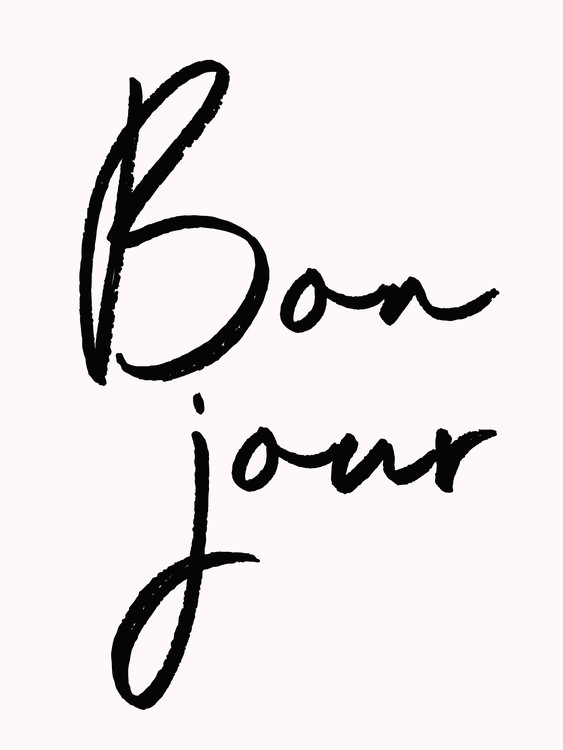 Bon
jour